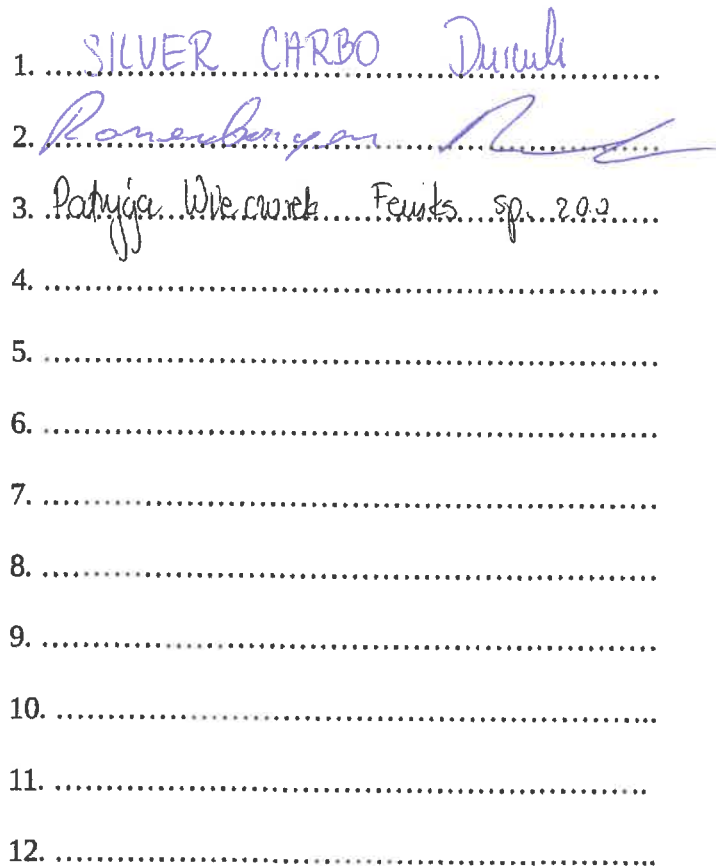 1. SILVER CARBO
2.
3. Patrycja Wieczorek Feniks sp. z o.o
4.
5.
6.
7.
8.
9.
10.
11.
12.